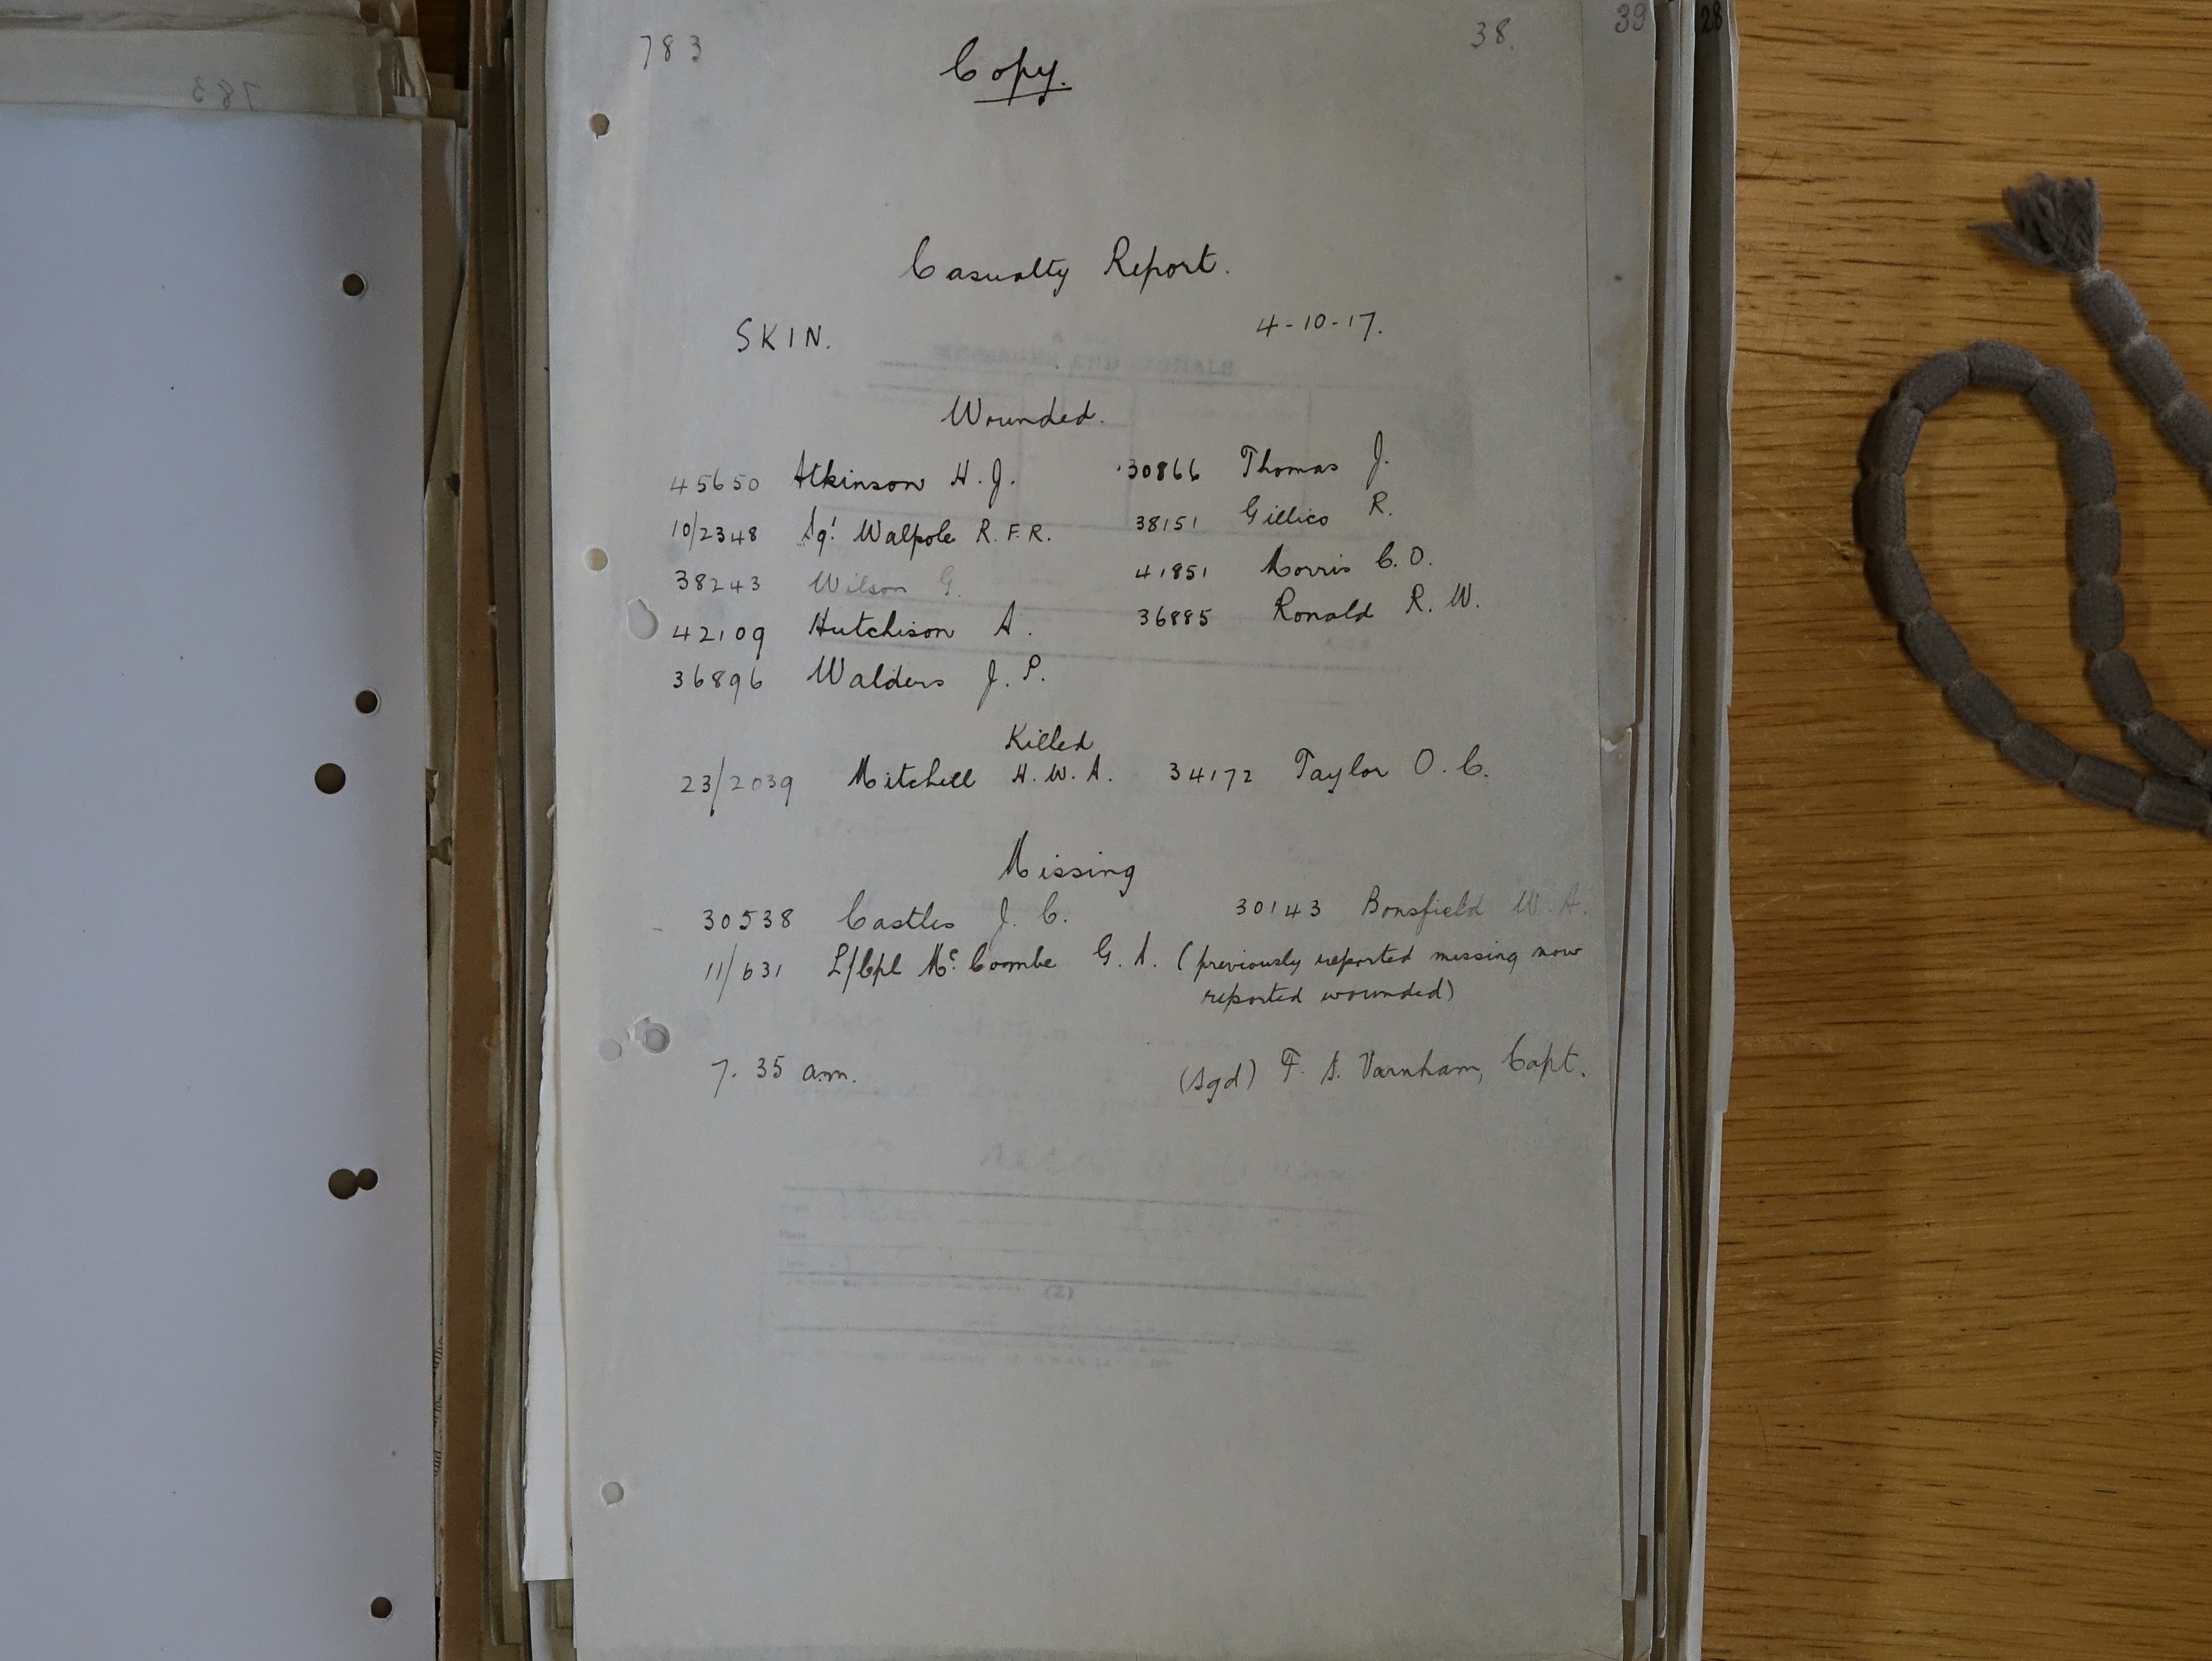 783
38.
39
28
783
Copy.
Casualty Report.
SKIN. 4-10-17.
Wounded.
45650 Atkinson H. J. 30866 Thomas J.
10/2348 Sgt Walpole R. F. R. 38151 Gillico R.
38243 Wilson G. 41851 Morris C. O.
42109 Hutchison A. 36885 Ronald R. W.
36896 Walders J. P.
Killed
23/2039 Mitchell H. W. A. 34172 Taylor O. C.
Missing
30538 Castles J. C. 30143 Bonsfield W. A.
11/631 L/Cpl Mc. Coombe G. A. (previously reported missing now
reported wounded)
7. 35 a.m. (Sgd) F. S. Varnham, Capt.